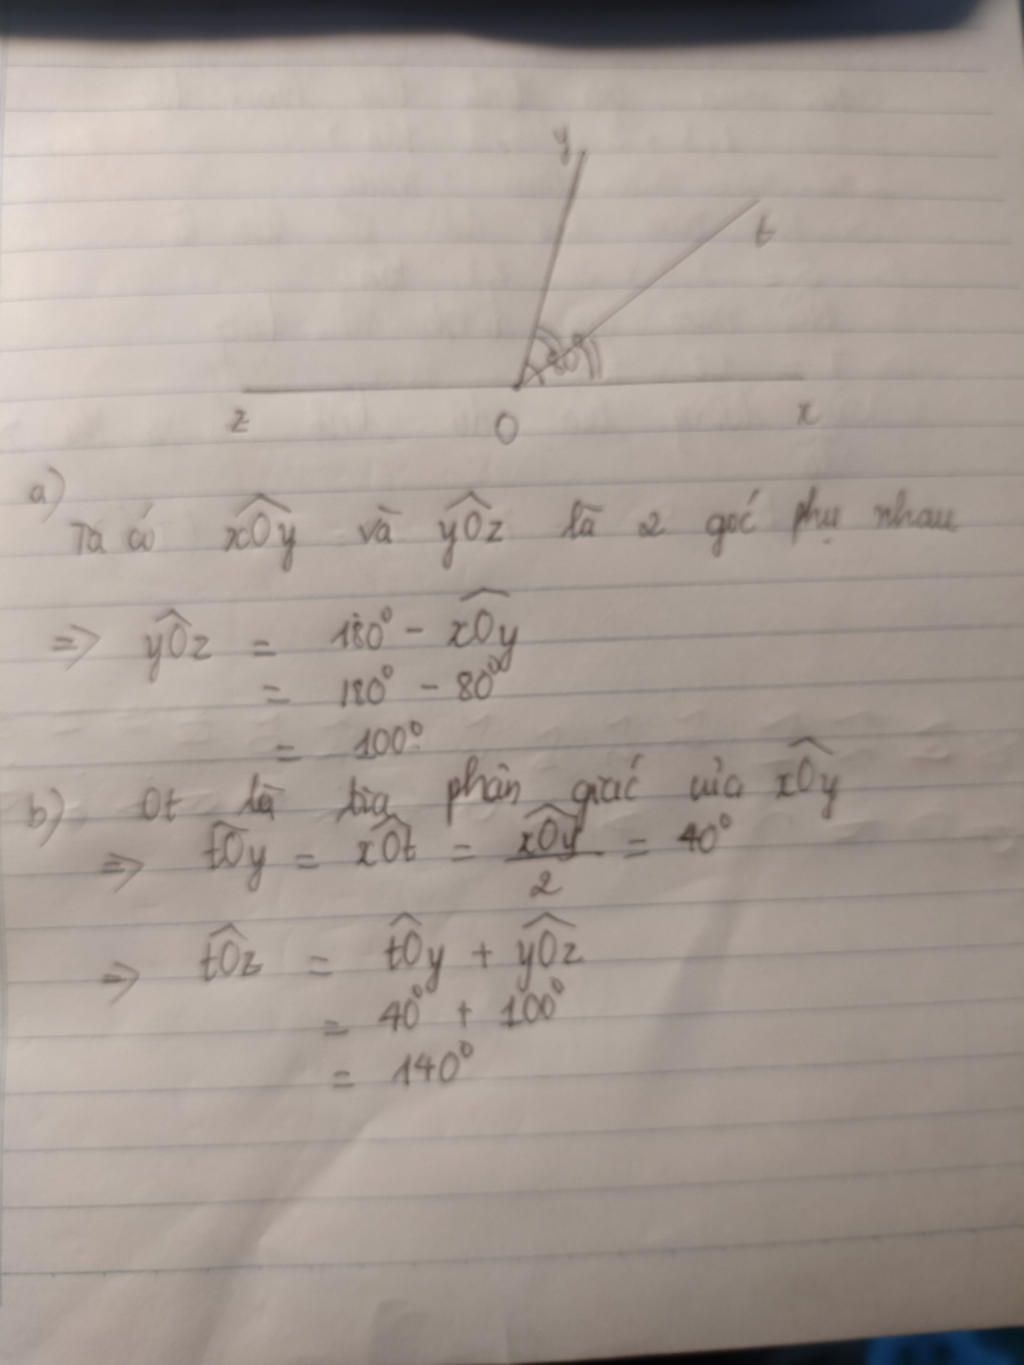 y
t
80°
z
O
x
a)
Ta có xÔy và yÔz là 2 góc phụ nhau
=> yÔz = 180° - xÔy
= 180° - 80°
= 100°
b) Ot là tia phân giác của xÔy
=> tÔy = xÔt = xÔy/2 = 40°
=> tÔz = tÔy + yÔz
= 40° + 100°
= 140°